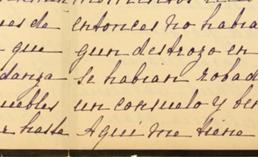 es de entonces no habia
que gun destrozo en
danza se habian robad
uebles un consuelo y ben
hasta Aqui me tiene